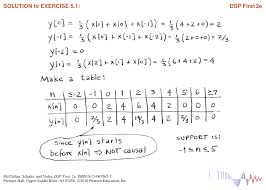 SOLUTION to EXERCISE 5.1: DSP First 2e
y[0] = 1/3 (x[1] + x[0] + x[-1]) = 1/3 (4+2+0) = 2
y[-1] = 1/3 (x[0] + x[-1] + x[-2]) = 1/3 (2+0+0) = 2/3
y[-2] = 0
y[1] = 1/3 (x[2] + x[1] + x[0]) = 1/3 (6+4+2) = 4
Make a table:
n ≤-2 -1 0 1 2 3 4 5 ≥6
x[n] 0 0 2 4 6 4 2 0 0
y[n] 0 2/3 2 4 14/3 4 2 2/3 0
since y[n] starts
before x[n] ⇒ NOT causal
SUPPORT IS:
-1 ≤ n ≤ 5
McClellan, Schafer, and Yoder, DSP First, 2e,
Prentice Hall, Upper Saddle River, NJ 07458. ©2016 Pearson Education, Inc.